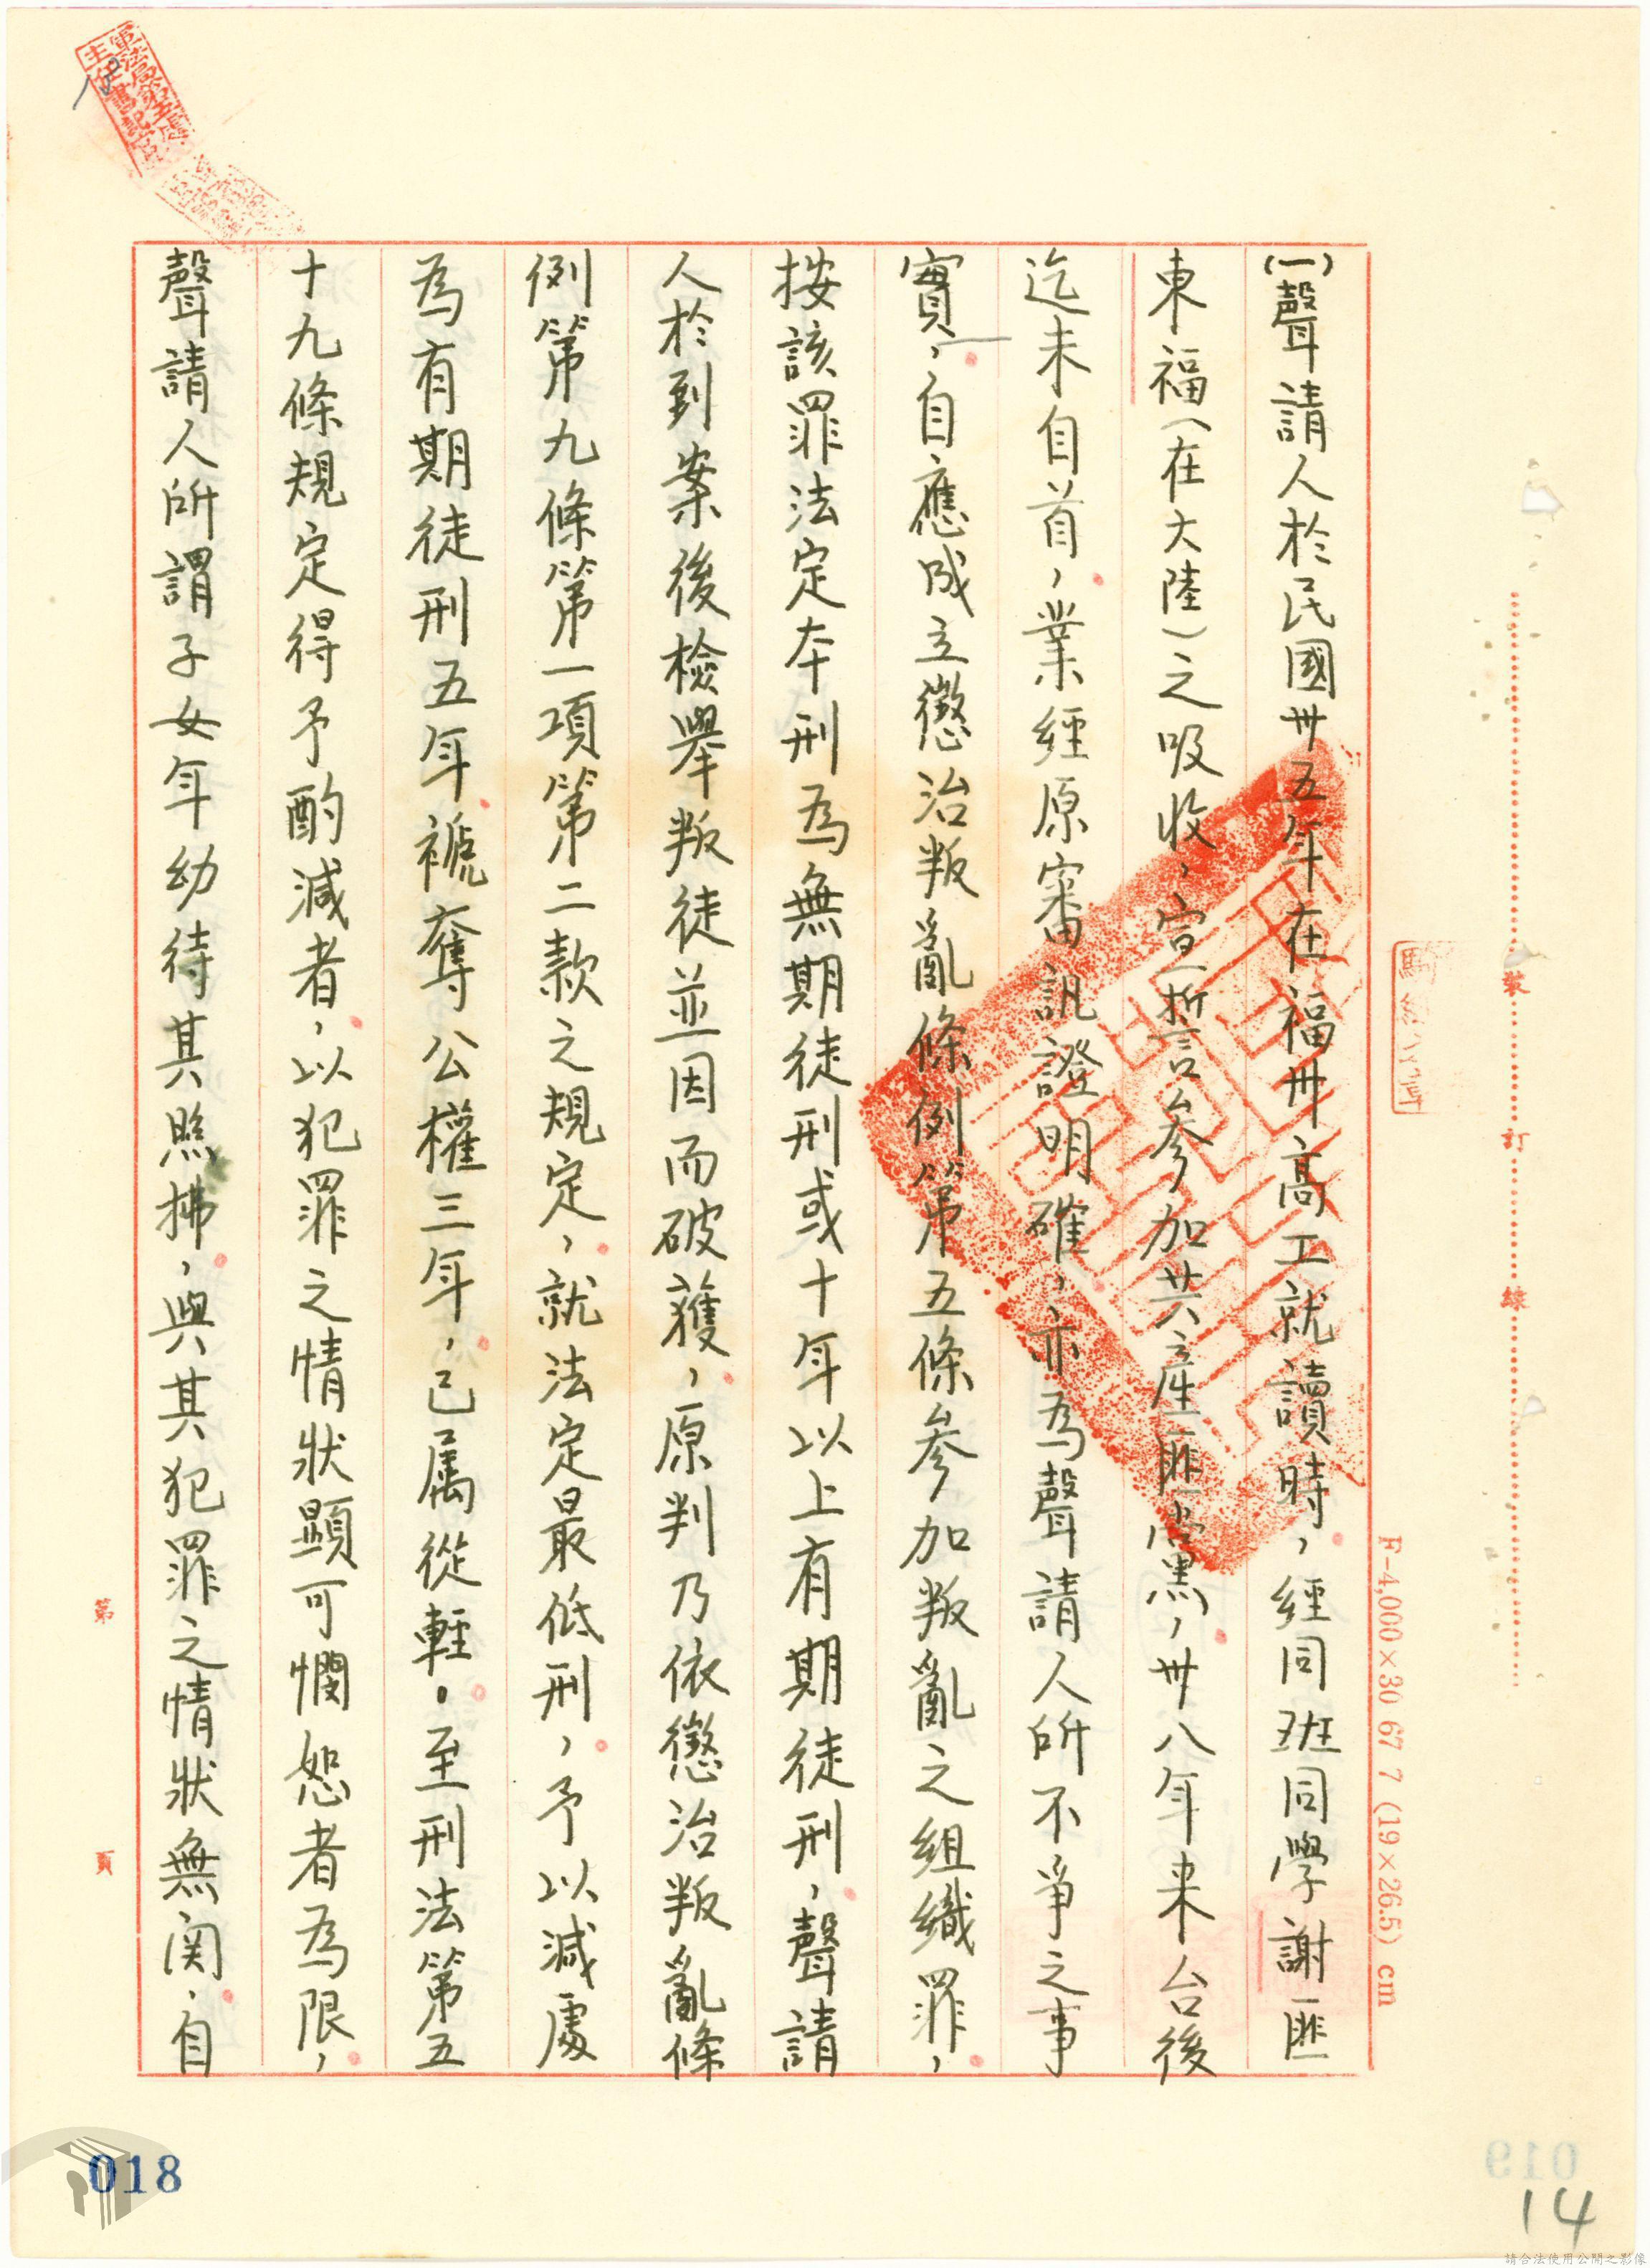 (一)聲請人於民國卅五年在福州高工就讀時，經同班同學謝匪
東福(在大陸)之吸收，宣誓參加共產匪黨，卅八年來台後
迄未自首，業經原審訊證明確，亦為聲請人所不爭之事
實，自應成立懲治叛亂條例第五條參加叛亂之組織罪，
按該罪法定本刑為無期徒刑或十年以上有期徒刑，聲請
人於到案後檢舉叛徒並因而破獲，原判乃依懲治叛亂條
例第九條第一項第二款之規定，就法定最低刑，予以減處
為有期徒刑五年褫奪公權三年，已屬從輕。至刑法第五
十九條規定得予酌減者，以犯罪之情狀顯可憫恕者為限，
聲請人所謂子女年幼待其照拂，與其犯罪之情狀無関，自
裝
訂
線
F-4,000×30 67 7 (19×26.5) cm
第 頁
軍法局第五處
主任書記官
018
019
14
請合法使用公開之影像